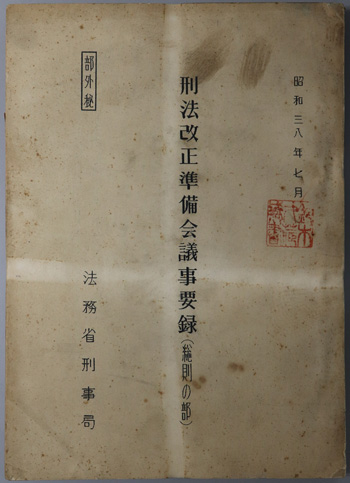 昭和三八年七月
刑法改正準備会議事要録(総則の部)
部外秘
法務省刑事局